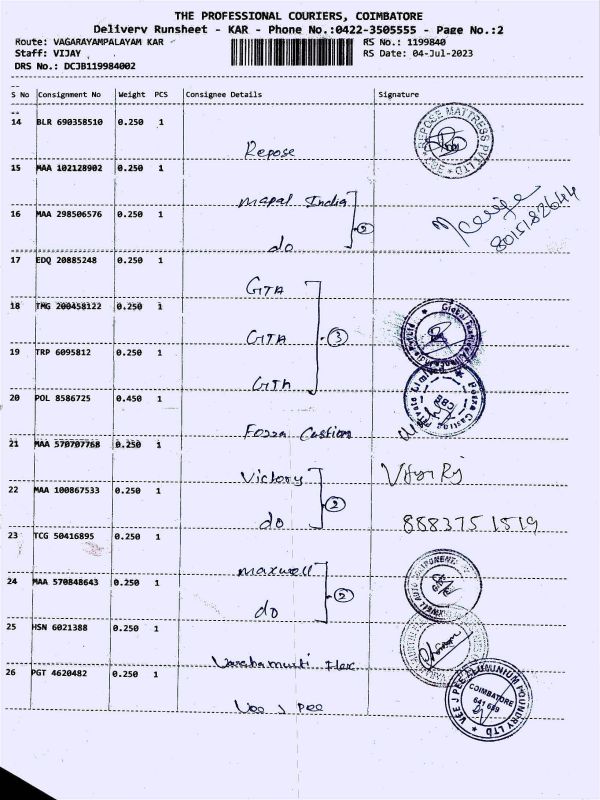 THE PROFESSIONAL COURIERS, COIMBATORE
Delivery Runsheet - KAR - Phone No.:0422-3505555 - Page No.:2
Route: VAGARAYAMPALAYAM KAR RS No.: 1199840
Staff: VIJAY RS Date: 04-Jul-2023
DRS No.: DCJB119984002
S No Consignment No Weight PCS Consignee Details Signature
14 BLR 690358510 0.250 1
Repose
REPOSE MATTRESS PVT LTD * CBE *
15 MAA 102128902 0.250 1
Mapal India
16 MAA 298506576 0.250 1
do
2
8015182644
17 EDQ 20885248 0.250 1
GTA
18 TMG 200458122 0.250 1
GTA
3
19 TRP 6095812 0.250 1
GTA
20 POL 8586725 0.450 1
Fozza Castion
CBE
21 MAA 570707768 0.250 1
Victory
22 MAA 100867533 0.250 1
do
2
8883751519
23 TCG 50416895 0.250 1
Maxwell
24 MAA 570848643 0.250 1
do
2
25 HSN 6021388 0.250 1
Varahamurti Flex
26 PGT 4620482 0.250 1
Vee J Pee
VEE J PEE ALUMINIUM FOUNDRY LTD
COIMBATORE
641 659